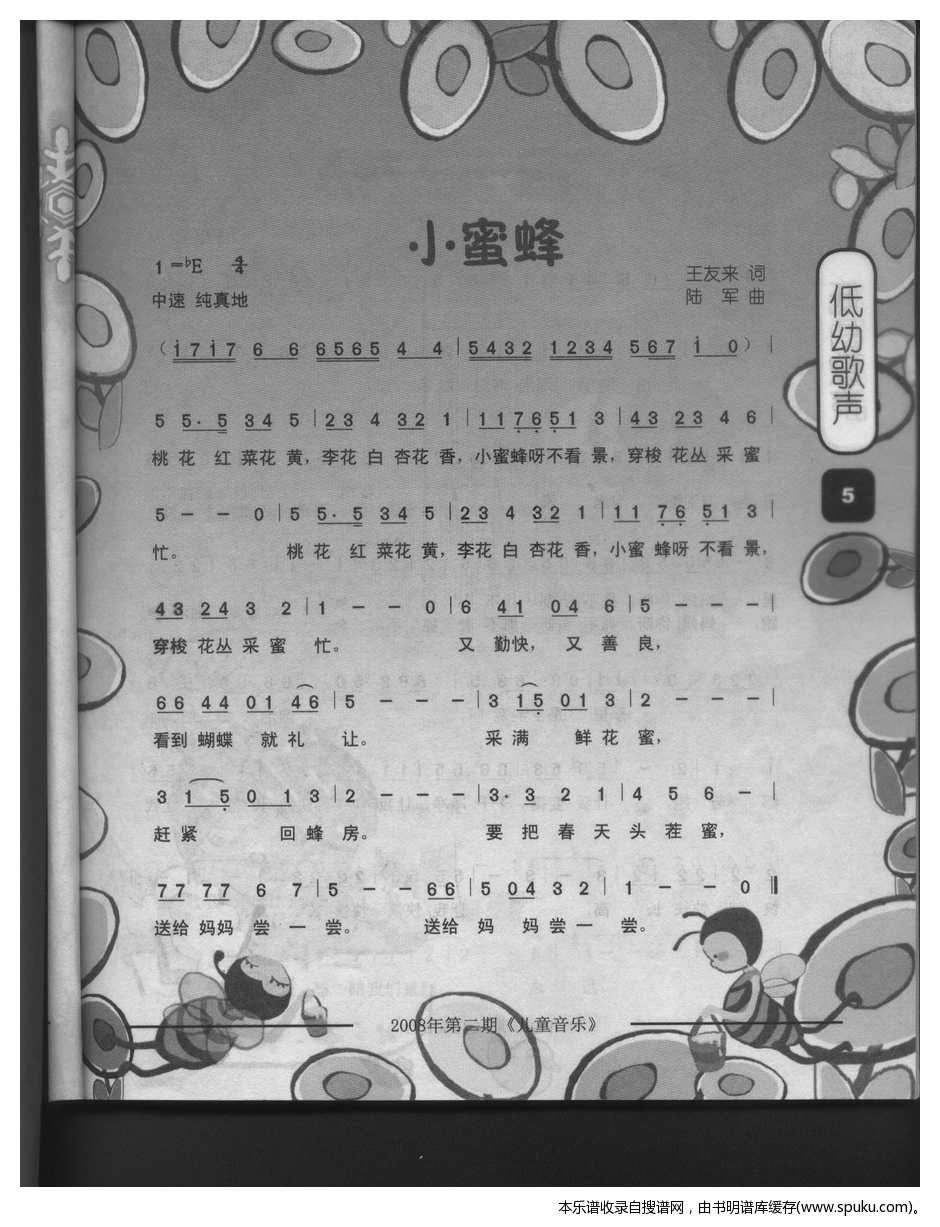 小蜜蜂
1=♭E 4/4
王友来 词
中速 纯真地
陆 军 曲
低幼歌声
5
（i 7 i 7 6 6 6 5 6 5 4 4 | 5 4 3 2 1 2 3 4 5 6 7 i 0）|
5 5· 5 3 4 5 | 2 3 4 3 2 1 | 1 1 7 6 5 1 3 | 4 3 2 3 4 6 |
桃 花 红 菜花 黄，李花 白 杏花 香，小蜜蜂呀不看 景，穿梭 花丛 采 蜜
5 － － 0 | 5 5· 5 3 4 5 | 2 3 4 3 2 1 | 1 1 7 6 5 1 3 |
忙。 桃 花 红 菜花 黄，李花 白 杏花 香，小蜜 蜂呀 不看 景，
4 3 2 4 3 2 | 1 － － 0 | 6 4 1 0 4 6 | 5 － － － |
穿梭 花丛 采 蜜 忙。 又 勤快， 又 善 良，
6 6 4 4 0 1 4 6 | 5 － － － | 3 1 5 0 1 3 | 2 － － － |
看到 蝴蝶 就 礼 让。 采 满 鲜 花 蜜，
3 1 5 0 1 3 | 2 － － － | 3· 3 2 1 | 4 5 6 － |
赶 紧 回 蜂 房。 要 把 春 天 头 茬 蜜，
7 7 7 7 6 7 | 5 － － 6 6 | 5 0 4 3 2 | 1 － － 0 ‖
送给 妈妈 尝 一 尝。 送给 妈 妈 尝 一 尝。
2008年第二期《儿童音乐》
本乐谱收录自搜谱网，由书明谱库缓存(www.spuku.com)。